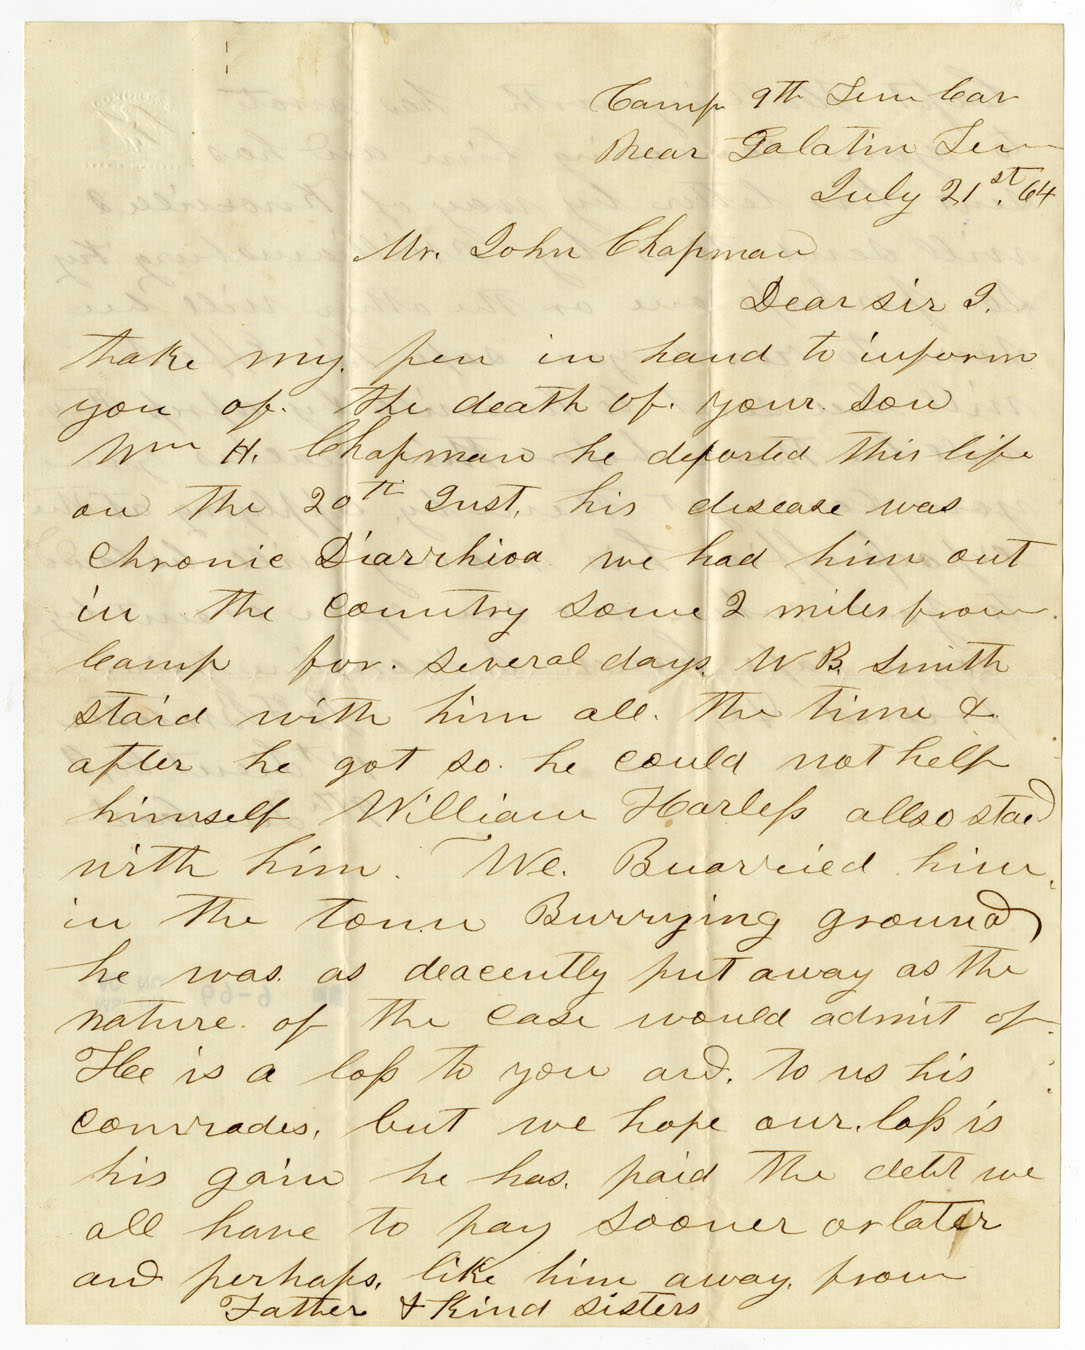 CONGRESS
Camp 9th Tenn Cav
Near Galatin Tenn
July 21st, 64
Mr. John Chapman
Dear Sir I.
thake my. pen in hand to inform
you of. the death of. your. Son
Wm H. Chapman he departed this life
on the 20th Inst, his disease was
Chronic Diarrhioa we had him out
in the Country Some 2 miles from
Camp for. Several days. W B. Smith
staid with him all. the time &
after he got so. he could not help
himself William Harless allso staid
with him. We. Buarried him
in the town Burrying ground
he was. as deacently put away as the
nature. of the case would admit of.
Hee is a loss to you and. to us his
comrades, but we hope our. loss is
his gain he has. paid the debt we
all have to pay Sooner or later
and perhaps, like him away, from
Father & Kind Sisters